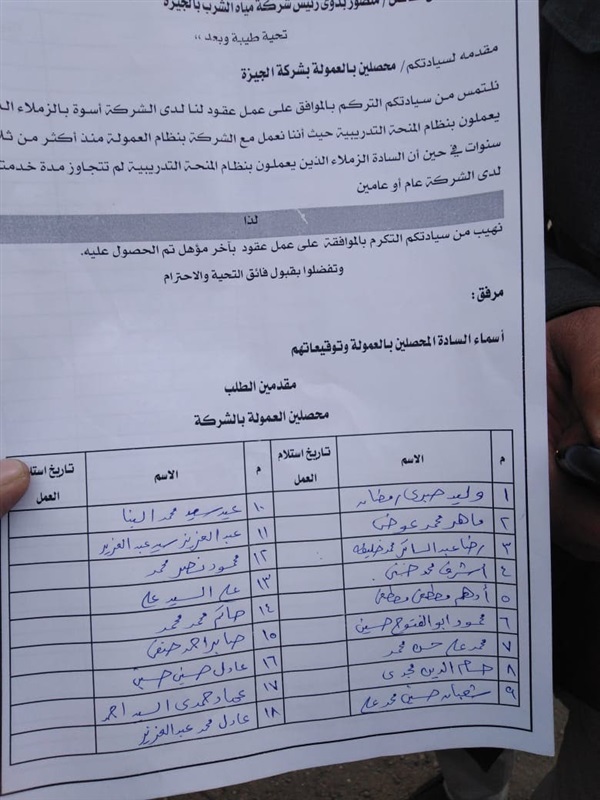 منصور بدوى رئيس شركة مياه الشرب بالجيزة
تحية طيبة وبعد ،،
مقدمه لسيادتكم / محصلين بالعمولة بشركة الجيزة
نلتمس من سيادتكم التركم بالموافق على عمل عقود لنا لدى الشركة أسوة بالزملاء
يعملون بنظام المنحة التدريبية حيث أننا نعمل مع الشركة بنظام العمولة منذ أكثر من
سنوات في حين أن السادة الزملاء الذين يعملون بنظام المنحة التدريبية لم تتجاوز مدة
لدى الشركة عام أو عامين
لذا
نهيب من سيادتكم التكرم بالموافقة على عمل عقود بآخر مؤهل تم الحصول عليه.
وتفضلوا بقبول فائق التحية والاحترام
مرفق :
أسماء السادة المحصلين بالعمولة وتوقيعاتهم
مقدمين الطلب
محصلين العمولة بالشركة
م الاسم تاريخ استلام العمل م الاسم تاريخ استلام العمل
١ وليد صبرى رمضان ١٠ عيد سعيد محمد البنا
٢ ماهر محمد عوض ١١ عبد العزيز سيد عبد العزيز
٣ رضا عبد الساتر محمد خليفة ١٢ محمود نصر محمد
٤ اشرف محمد حنفى ١٣ على السيد على
٥ أدهم مصطفى مصطفى ١٤ حاتم محمد محمد
٦ محمود ابو الفتوح حسين ١٥ صابر احمد حنفى
٧ محمد على حسن محمد ١٦ عادل حسين حسين
٨ حسام الدين مجدى ١٧ عماد حمدى السيد احمد
٩ شعبان حسين محمد على ١٨ عادل محمد عبد العزيز